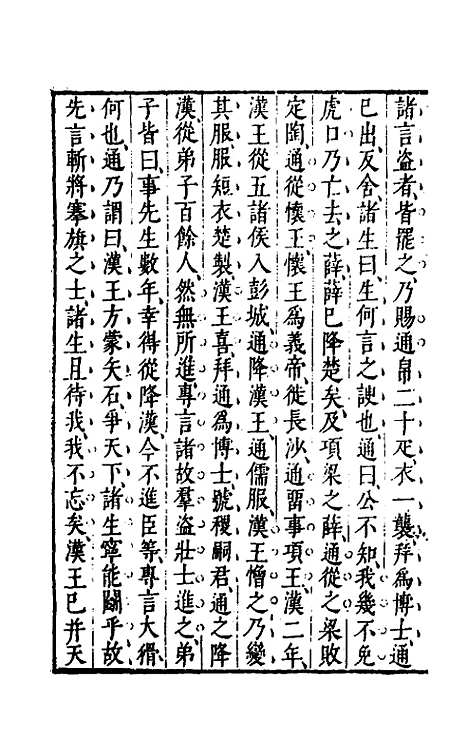 諸言盗者皆罷之乃賜通帛二十疋衣一襲拜爲博士通
已出反舍諸生曰生何言之諛也通曰公不知我幾不免
虎口乃亡去之薛薛已降楚矣及項梁之薛通從之梁敗
定陶通從懷王懷王爲義帝徙長沙通留事項王漢二年
漢王從五諸侯入彭城通降漢王通儒服漢王憎之乃變
其服服短衣楚製漢王喜拜通爲博士號稷嗣君通之降
漢從弟子百餘人然無所進專言諸故羣盗壯士進之弟
子皆曰事先生數年幸得從降漢今不進臣等專言大猾
何也通乃謂曰漢王方蒙矢石爭天下諸生寧能鬭乎故
先言斬將搴旗之士諸生且待我我不忘矣漢王已并天